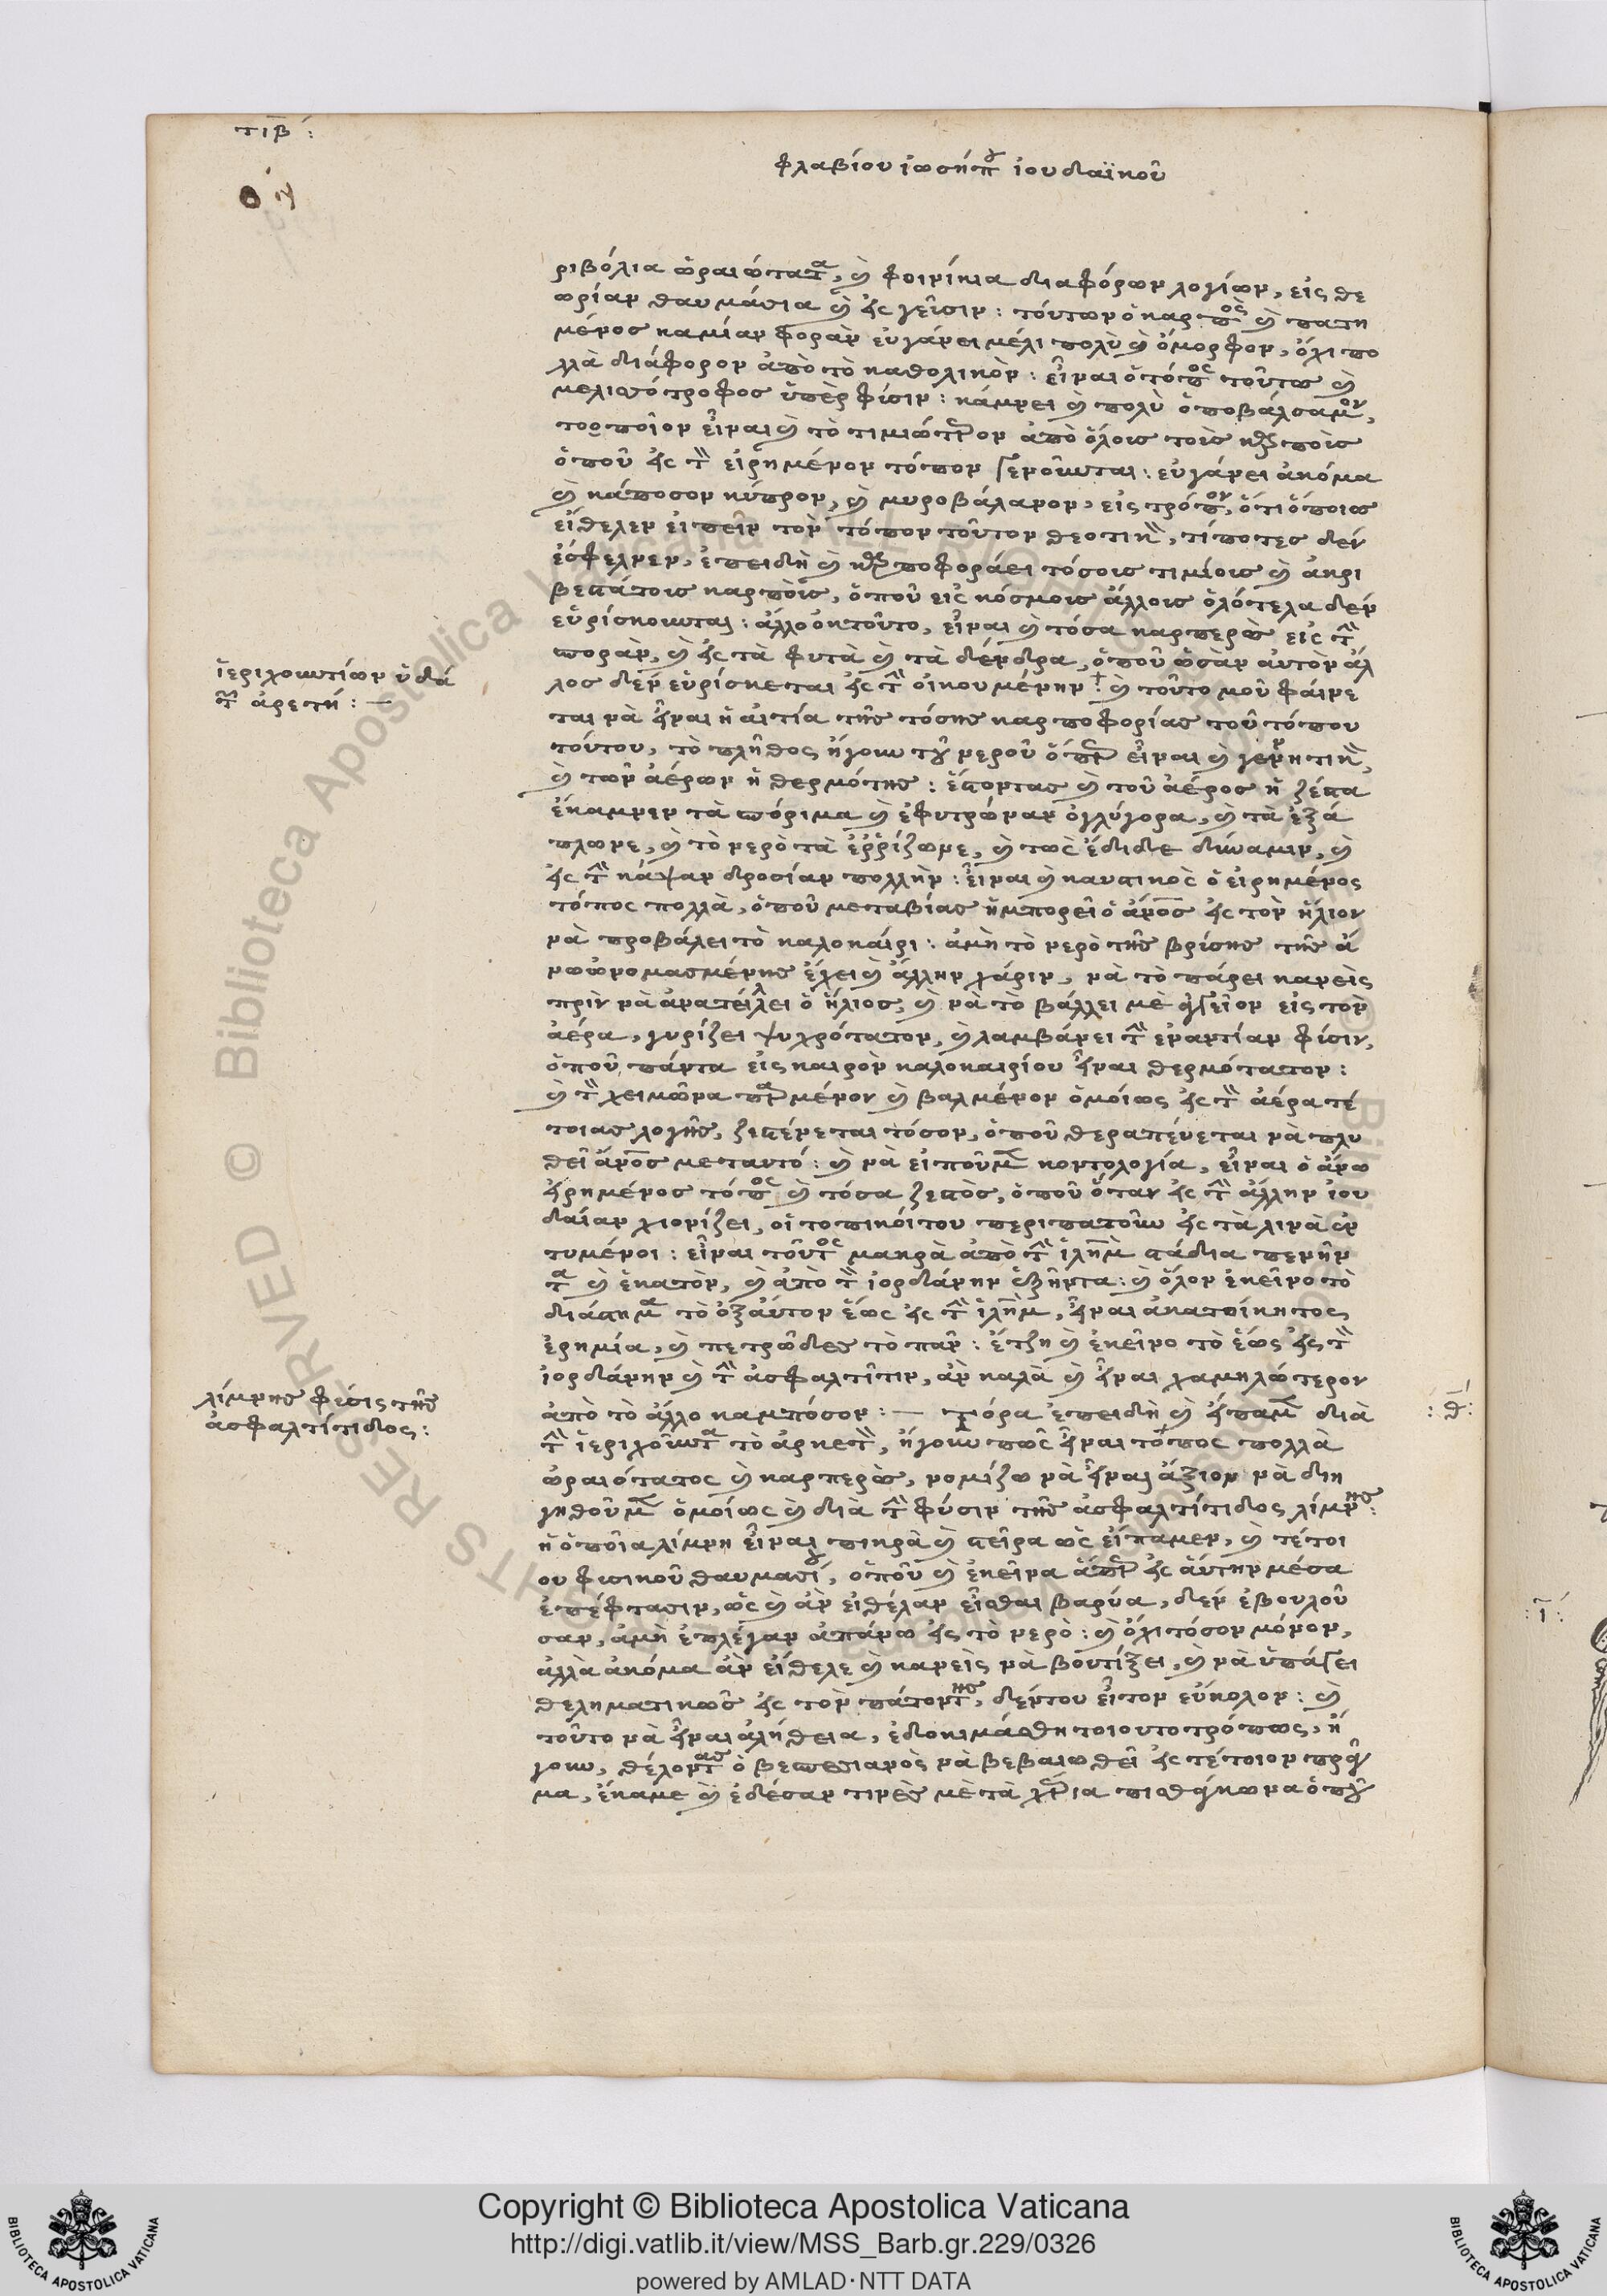 τιβ:
φλαβίου ἰωσήπου ἰουδαϊκοῦ
ριβόλια ὡραιώτατα, καὶ φοινίκια διαφόρων λογίων, εἰς θε
ωρίαν θαυμάσια καὶ εἰς γεῦσιν: τούτων ὁ καρπὸς καὶ πατη
μένος καμίαν φορὰν εὐγάνει μέλι πολὺ καὶ ὄμορφον, ὄχι πο
λλὰ διάφορον ἀπὸ τὸ καθολικὸν: εἶναι ὁ τόπος τοῦτος καὶ
μελισσότροφος ὑπὲρ φύσιν: κάμνει καὶ πολὺ ὀποβάλσαμον,
τὸ ὁποῖον εἶναι καὶ τὸ τιμιώτερον ἀπὸ ὅλοις τοὶς καρποὶς
ὁποῦ εἰς τὸν εἰρημένον τόπον γενοῦνται: εὐγάνει ἀκόμα
καὶ κάποσον κύπρον, καὶ μυροβάλανον, εἰς τρόπον, ὅτι ὅποιος
εἴθελεν εἰπεῖν τὸν τόπον τοῦτον θεοτικὸν, τίποτες δέν
ἔσφελνεν, ἐπειδὴ καὶ καρποφοράει τόσοις τιμίοις καὶ ἀκρι
βετάτοις καρποὶς, ὁποῦ εἰς κόσμοις ἄλλοις ὁλότελα δέν
εὑρίσκονται: ἀλλοόντοῦτο, εἶναι καὶ τόσα καρπερὸς εἰς τὴν
σποράν, καὶ εἰς τὰ φυτὰ καὶ τὰ δένδρα, ὁποῦ ὡσὰν αὐτὸν ἄλ
λος δὲν εὑρίσκεται εἰς τὴν οἰκουμένην: καὶ τοῦτο μοῦ φαίνε
ται νὰ εἶναι ἡ αἰτία τῆς τόσης καρποφορίας τοῦ τόπου
τούτου, τὸ πλῆθος ἤγουν τοῦ νεροῦ ὅπερ εἶναι καὶ γεννητικὸν,
καὶ τῶν ἀέρων ἡ θερμότης: ἔστοντας καὶ τοῦ ἀέρος ἡ ζέστα
ἔκαμνεν τὰ σπόριμα καὶ ἐφυτρώναν ὀγλύγορα, καὶ τὰ ἐξά
πλωνε, καὶ τὸ νερὸ τὰ ἐῤῥίζωνε, καὶ τὼς ἔδιδε δύναμιν, καὶ
εἰς τὴν κάψαν δροσίαν πολλὴν: εἶναι καὶ καυστικὸς ὁ εἰρημένος
τόπος πολλὰ, ὁποῦ μεταβίας ἠμπορεῖ ὁ ἄνθρωπος εἰς τὸν ἥλιον
νὰ προβάλει τὸ καλοκαίρι: ἀμὴ τὸ νερὸ τῆς βρίσης τῆς ἀ
νωωνομασμένης ἔχει καὶ ἄλλην χάριν, νὰ τὸ πάρει κανεὶς
πρὶν νὰ ἀνατείλει ὁ ἥλιος, καὶ νὰ τὸ βάλλει μὲ ἀγγεῖον εἰς τὸν
ἀέρα, γυρίζει ψυχρότατον, καὶ λαμβάνει τὴν ἐναντίαν φύσιν,
ὁποῦ πάντα εἰς καιρὸν καλοκαιρίου εἶναι θερμότατον:
καὶ τὸν χειμῶνα παρμένον καὶ βαλμένον ὁμοίως εἰς τὸν ἀέρα τέ
τοιας λογῆς, ζεστένεται τόσον, ὁποῦ θεραπεύεται νὰ πλυ
θεῖ ἄνθρωπος με ταυτό: καὶ νὰ εἰποῦμεν κοντολογία, εἶναι ὁ ἄνω
εἰρημένος τόπος καὶ τόσα ζεστὸς, ὁποῦ ὅταν εἰς τὴν ἄλλην ἰου
δαίαν χιονίζει, οἱ τοπικοί του περιπατοῦν εἰς τὰ λινὰ ἐν
τυμένοι: εἶναι τοῦτος μακρὰ ἀπὸ τὴν ἱλημ στάδια πενῆν
τα καὶ ἑκατὸν, καὶ ἀπὸ τὸν ἰορδάνην ἑξῆντα: καὶ ὅλον ἐκεῖνο τὸ
διάστημα τὸ ὀξαύτον ἕως εἰς τὴν ἱλημ, εἶναι ἀκατοίκητος
ἐρημία, καὶ πετρῶδες τὸ πᾶν: ἔτζη καὶ ἐκεῖνο τὸ ἕως εἰς τὸν
ἰορδάνην καὶ τὴν ἀσφαλτῖτιν, ἂν καλὰ καὶ εἶναι χαμηλώτερον
ἀπὸ τὸ ἄλλο καμπόσον: — Τόρα ἐπειδὴ καὶ εἴπαμεν διὰ
τὴν ἱεριχοῦντα τὸ ἀρκετὸν, ἤγουν πῶς εἶναι τόπος πολλὰ
ὡραιότατος καὶ καρπερὸς, νομίζω νὰ εἶναι ἄξιον νὰ διη
γηθοῦμεν ὁμοίως καὶ διὰ τὴν φύσιν τῆς ἀσφαλτίτιδος λίμνης:
ἡ ὁποῖα λίμνη εἶναι πικρὰ καὶ στεῖρα ὡς εἴπαμεν, καὶ τέτοι
ου φυσικοῦ θαυμασίου, ὁποῦ καὶ ἐκεῖνα ἅπερ εἰς αὔτην μέσα
ἐπέφτασιν, ὡς καὶ ἂν εἰθέλαν εἶσθαι βαρύα, δέν ἐβουλοῦ
σαν, ἀμὴ ἐπλέγαν ἀπάνω εἰς τὸ νερὸ: καὶ ὄχι τόσον μόνον,
ἀλλὰ ἀκόμα ἂν εἴθελε καὶ κανεὶς νὰ βουτίξει, καὶ νὰ ὑπάγει
θεληματικῶς εἰς τὸν πάτοντης, δέντου εἶτον εὔκολον: καὶ
τοῦτο νὰ εἶναι ἀλήθεια, ἐδοκιμάσθη τοιουτοτρόπως, ἤ
γουν, θέλοντας ὁ βεσπεσιανὸς νὰ βεβαιωθεῖ εἰς τέτοιον πρᾶγ
μα, ἔκαμε καὶ ἐδέσαν τινὲς μὲ τὰ χέρια πισθάγκωνα ὁποῦ
ἱεριχουντίων ὑδά
των ἀρετή: —
λίμνης φύσις τῆς
ἀσφαλτίτιδος:
:θ:
:ι:
Copyright © Biblioteca Apostolica Vaticana
http://digi.vatlib.it/view/MSS_Barb.gr.229/0326
powered by AMLAD·NTT DATA